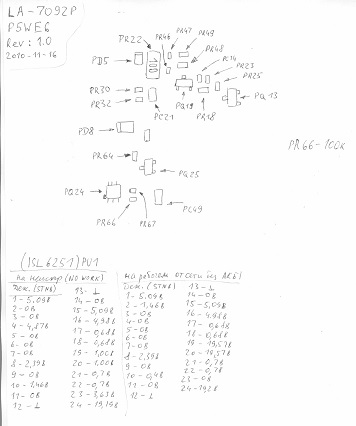 LA-7092P
P5WE6
Rev: 1.0
2010-11-16
PR22
PR46
PR47
PR49
PR48
PC14
PR23
PR25
PD5
PQ13
PR30
PR32
PC21
PQ19
PR18
PD8
PR66-100K
PR64
PQ25
PQ24
PR66
PR67
PC49
(ISL6251)PU1
на неиспр(NO WORK)
Деж.(STNB)
1-5,09В
2-0В
3-0В
4-4,87В
5-0В
6-0В
7-0В
8-2,39В
9-0В
10-1,46В
11-0В
12-⊥
13-⊥
14-0В
15-5,09В
16-4,98В
17-0,68В
18-0,68В
19-1,00В
20-1,00В
21-0,7В
22-0,7В
23-3,63В
24-19,19В
на рабочем от сети без АКБ)
Деж.(STNB)
1-5,09В
2-1,46В
3-0В
4-0В
5-0В
6-0В
7-0В
8-2,39В
9-0В
10-0,4В
11-0В
12-⊥
13-⊥
14-0В
15-5,09В
16-4,98В
17-0,68В
18-0,68В
19-19,57В
20-19,57В
21-0,7В
22-0,7В
23-0В
24-19,2В